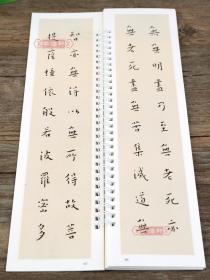 無無明盡乃至無老死亦
無老死盡無苦集滅道無
智亦無得以無所得故菩
提薩埵依般若波羅蜜多